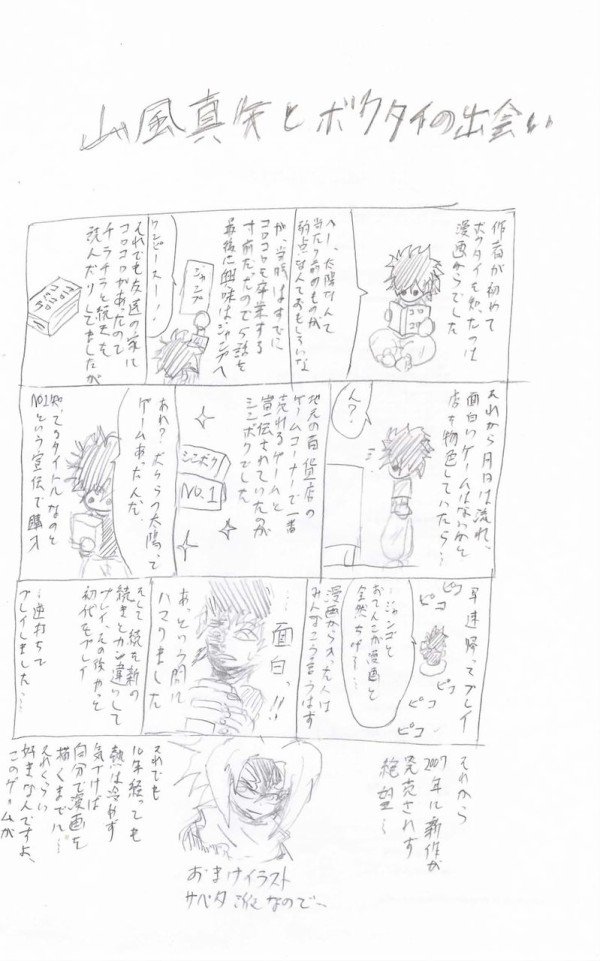 山風真矢とボクタイの出会い
作者が初めて
ボクタイを知ったのは
漫画からでした
コロコロ
へー、太陽なんて
当たり前のものが
弱点なんておもしろいな
が、当時はすでに
コロコロを卒業する
寸前だったので5話を
最後に興味はジャンプへ
ジャンプ
ワンピースー!
それでも友達の家に
コロコロがあったので
チラチラと続きを
読んだりしてましたが
コロコロ
それから月日は流れ、
面白いゲームはないかと
店を物色していたら…
ん?
地元の百貨店の
ゲームコーナーで一番
売れるゲームと
宣伝されていたのが
シンボクでした
シンボク
NO.1
あれ?ボクらの太陽って
ゲームあったんだ
知ってるタイトルなのと
NO.1という宣伝で購入
早速帰ってプレイ
ピコ
ピコ
ピコ
ピコ
…ジャンゴと
おてんこが漫画と
全然ちげー…
漫画から入った人は
みんなこう言うはず
…面白っ!!
あっという間に
ハマりました
そして続を新の
続きとカン違いして
プレイ、その後やっと
初代をプレイ
…逆打ちで
プレイしました…
それから
2007年に新作が
発売されず
絶望…
それでも
10年経っても
熱は冷めず
気づけば
自分で漫画を
描くまでに…
それくらい
好きなんですよ、
このゲームが
おまけイラスト
サバタ
なのでー